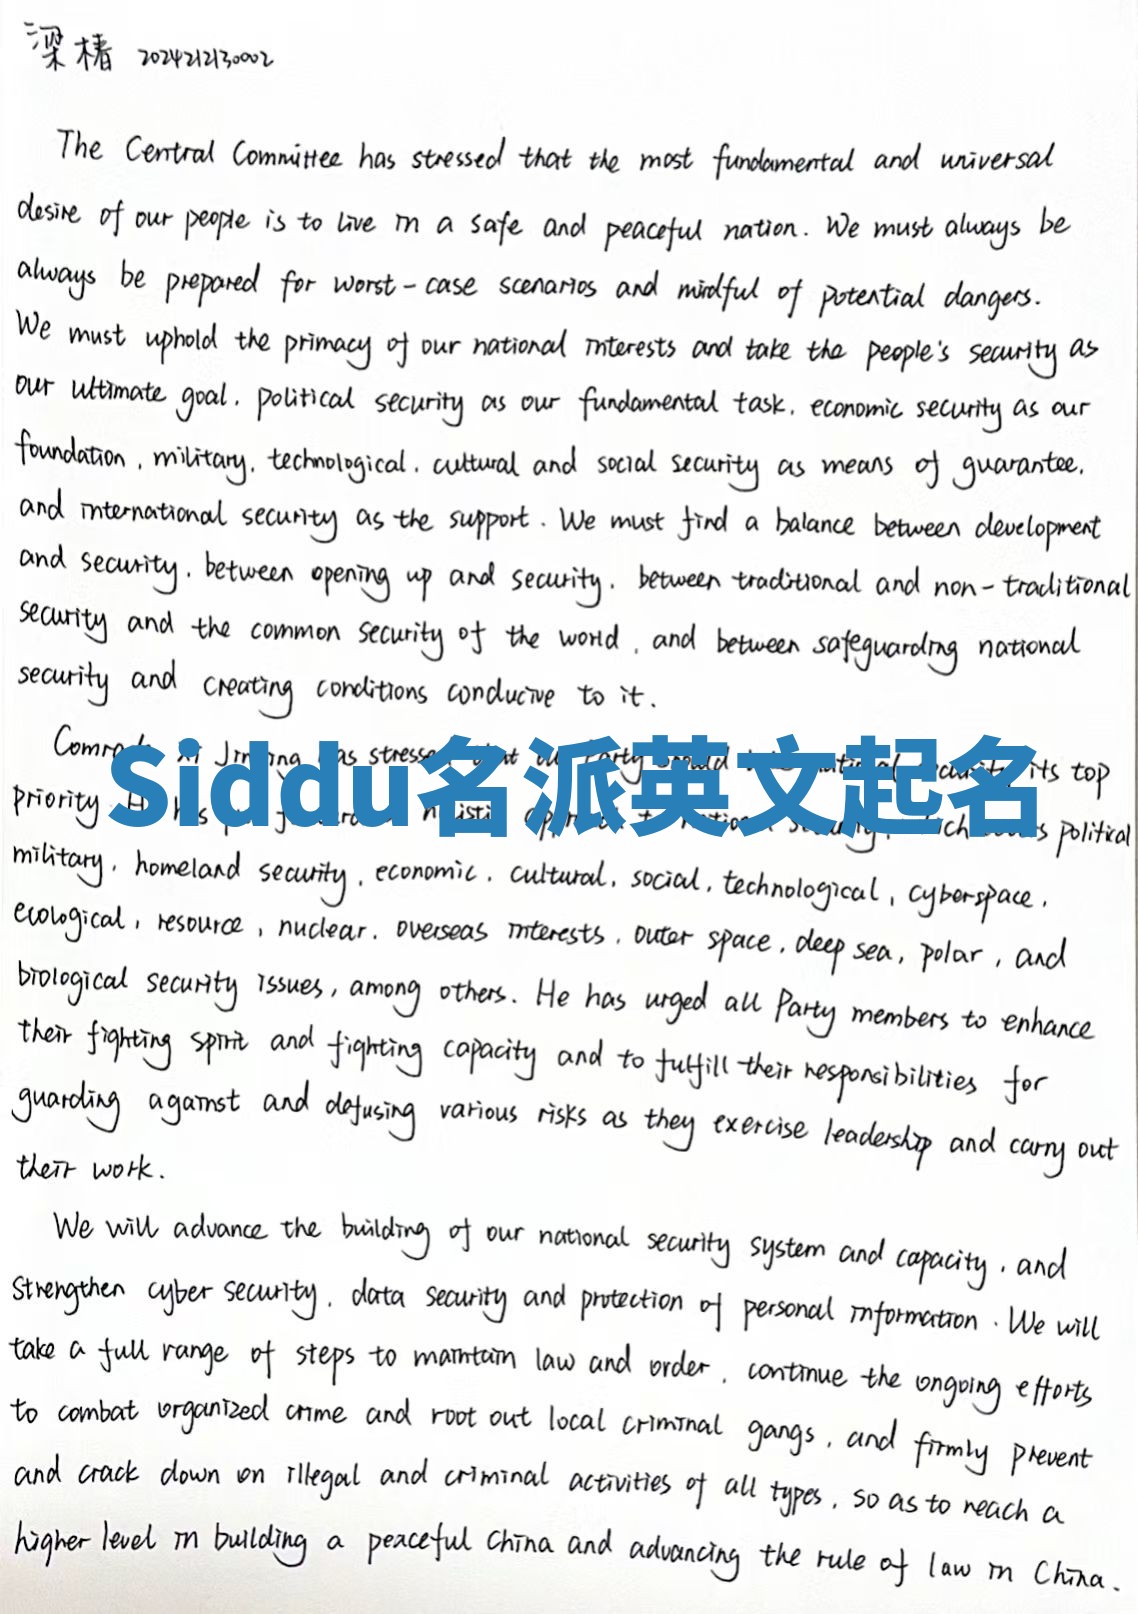 梁椿 2024212130002
The Central Committee has stressed that the most fundamental and universal
desire of our people is to live in a safe and peaceful nation. We must always be
always be prepared for worst-case scenarios and mindful of potential dangers.
We must uphold the primacy of our national interests and take the people's security as
our ultimate goal, political security as our fundamental task, economic security as our
foundation, military, technological, cultural and social security as means of guarantee,
and international security as the support. We must find a balance between development
and security, between opening up and security, between traditional and non-traditional
security and the common security of the world, and between safeguarding national
security and creating conditions conducive to it.
Jinping has stressed that our Party should national security its top
Siddu名派英文起名
priority. He has holistic approach to national security, which covers political
military, homeland security, economic, cultural, social, technological, cyberspace,
ecological, resource, nuclear, overseas interests, outer space, deep sea, polar, and
biological security issues, among others. He has urged all Party members to enhance
their fighting spirit and fighting capacity and to fulfill their responsibilities for
guarding against and defusing various risks as they exercise leadership and carry out
their work.
We will advance the building of our national security system and capacity, and
strengthen cyber security, data security and protection of personal information. We will
take a full range of steps to maintain law and order, continue the ongoing efforts
to combat organized crime and root out local criminal gangs, and firmly prevent
and crack down on illegal and criminal activities of all types, so as to reach a
higher level in building a peaceful China and advancing the rule of law in China.